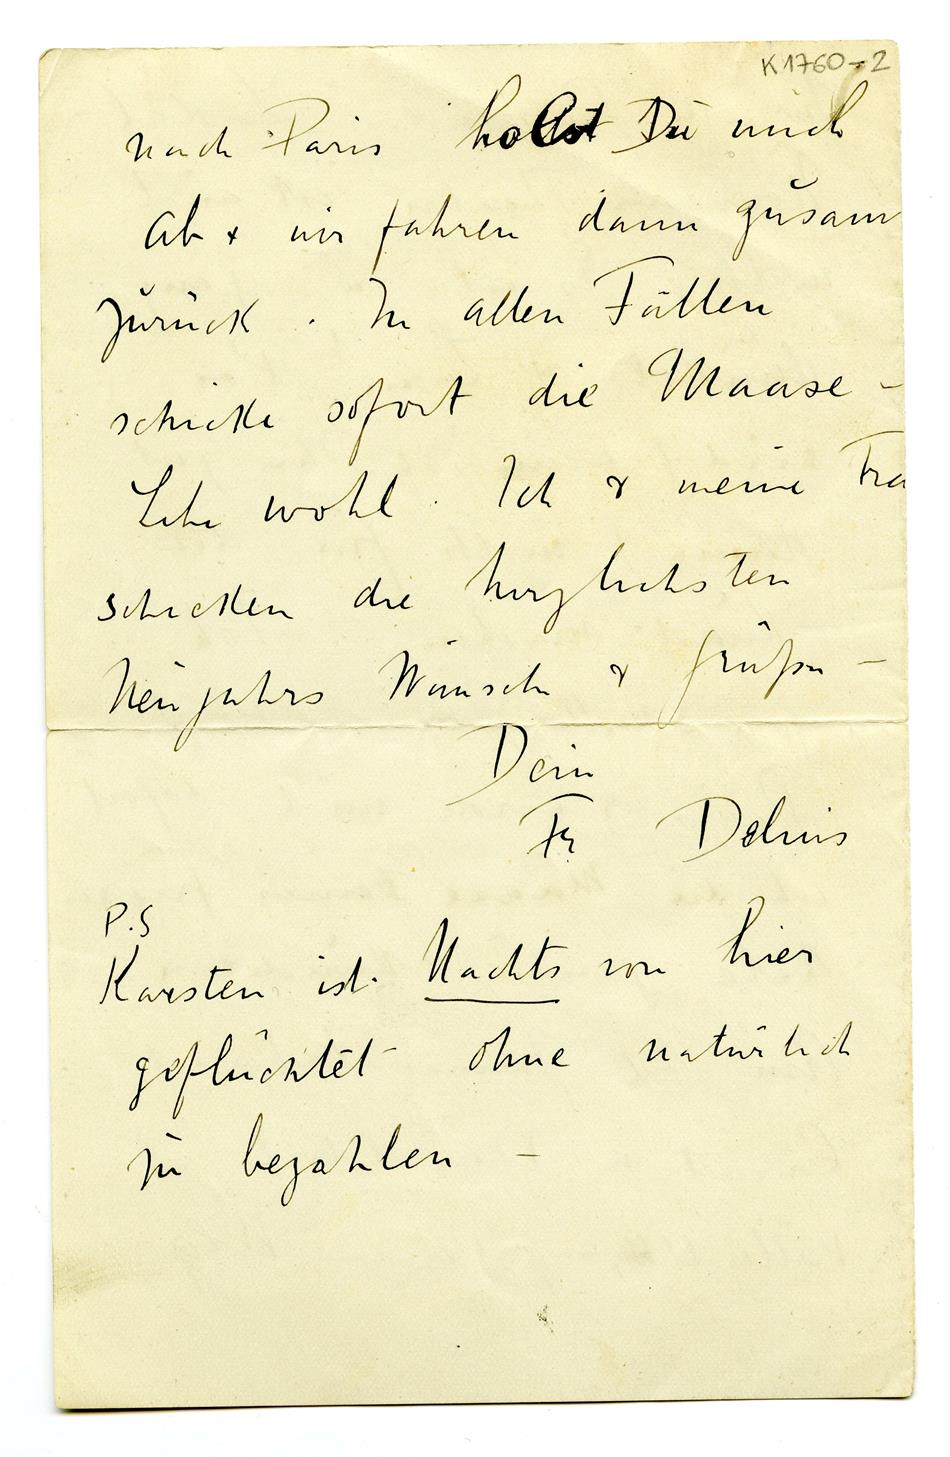 K1760-2
nach Paris holst Du mich
ab & wir fahren dann zusam
zurück. In allen Fällen
schicke sofort die Maase –
Lebe wohl. Ich & meine Fra
schicken die herzlichsten
Neujahrs Wünsche & grüsse –
Dein
Fr Delius
P.S
Karsten ist Nachts von hier
geflüchtet ohne natürlich
zu bezahlen –